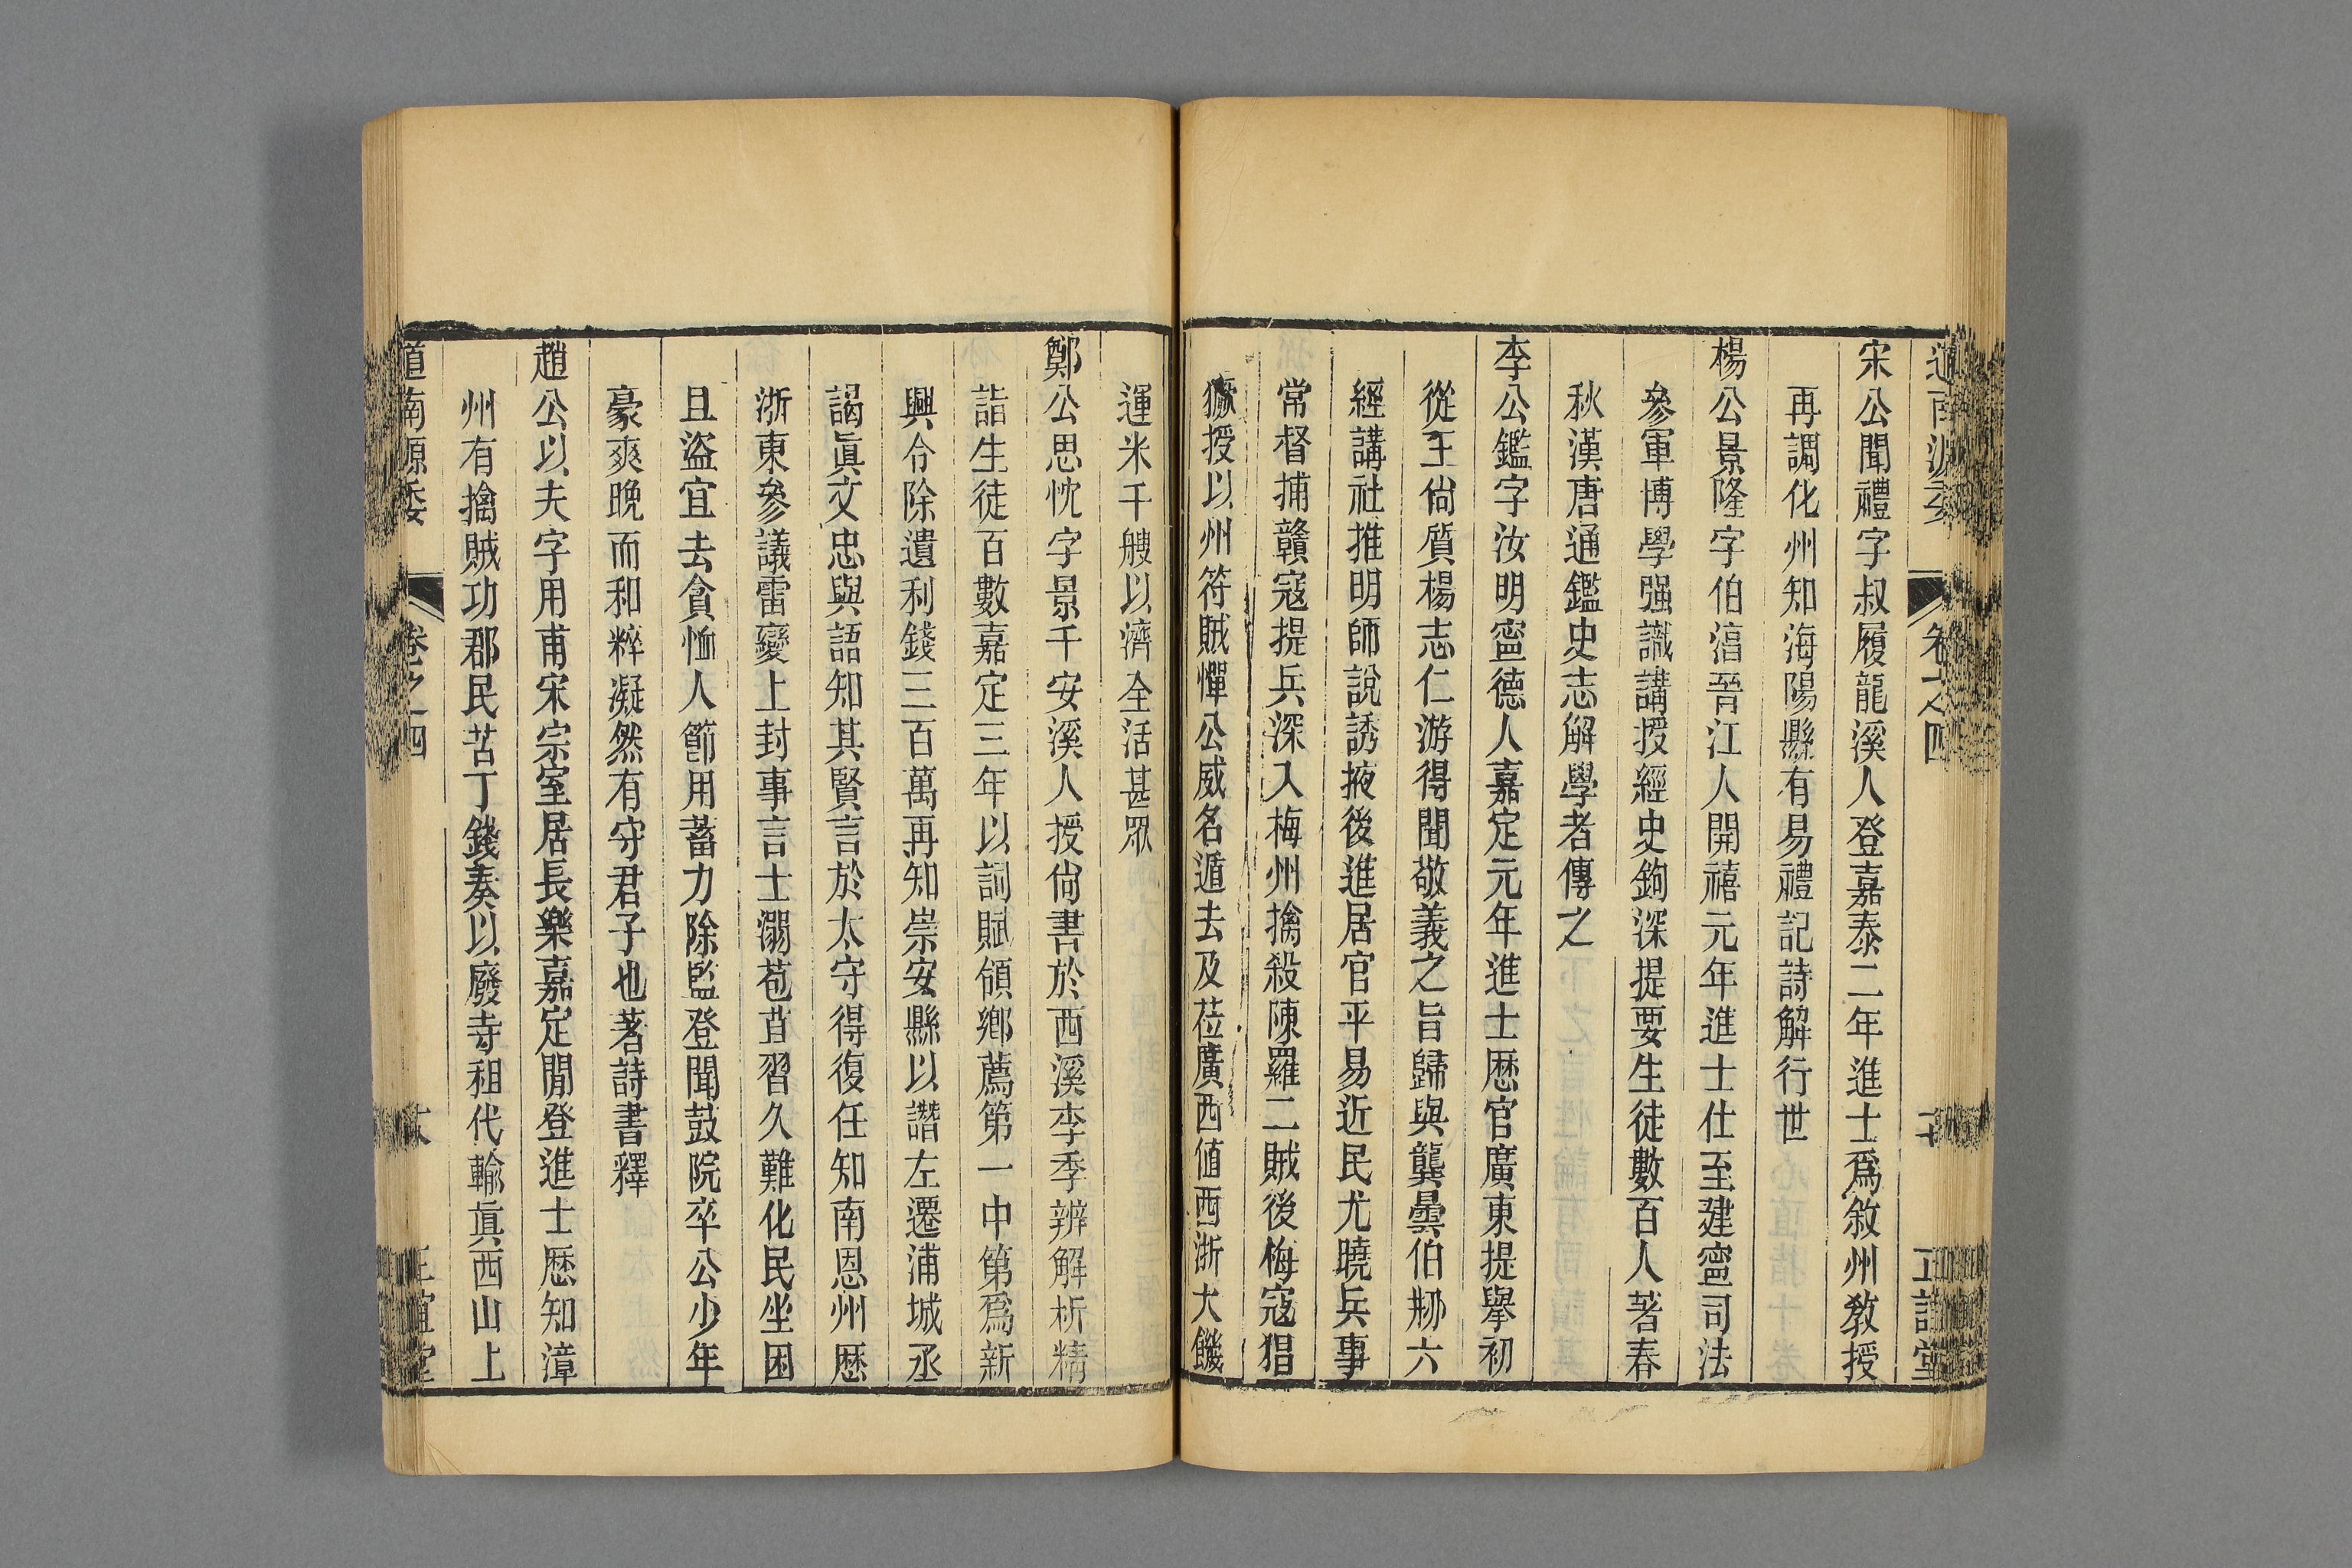 道南源委 卷之四 正誼堂
宋公聞禮字叔履龍溪人登嘉泰二年進士爲敘州教授
再調化州知海陽縣有易禮記詩解行世
楊公景隆字伯淐晉江人開禧元年進士仕至建寧司法
參軍博學强識講授經史鉤深提要生徒數百人著春
秋漢唐通鑑史志解學者傳之
李公鑑字汝明寧德人嘉定元年進士歷官廣東提舉初
從王尙質楊志仁游得聞敬義之旨歸與龔曇伯剏六
經講社推明師說誘掖後進居官平易近民尤曉兵事
常督捕贛寇提兵深入梅州擒殺陳羅二賊後梅寇猖
獗授以州符賊憚公威名遁去及莅廣西値西浙大饑
運米千艘以濟全活甚眾
鄭公思忱字景千安溪人授尙書於西溪李季辨解析精
詣生徒百數嘉定三年以詞賦領鄉薦第一中第爲新
興令除遺利錢三百萬再知崇安縣以譖左遷浦城丞
謁眞文忠與語知其賢言於太守得復任知南恩州歷
浙東參議雷變上封事言士溺苞苴習久難化民坐困
且盜宜去貪恤人節用蓄力除監登聞鼓院卒公少年
豪爽晚而和粹凝然有守君子也著詩書釋
趙公以夫字用甫宋宗室居長樂嘉定閒登進士歷知漳
州有擒賊功郡民苦丁錢奏以廢寺租代輸眞西山上
道南源委 卷之四 正誼堂